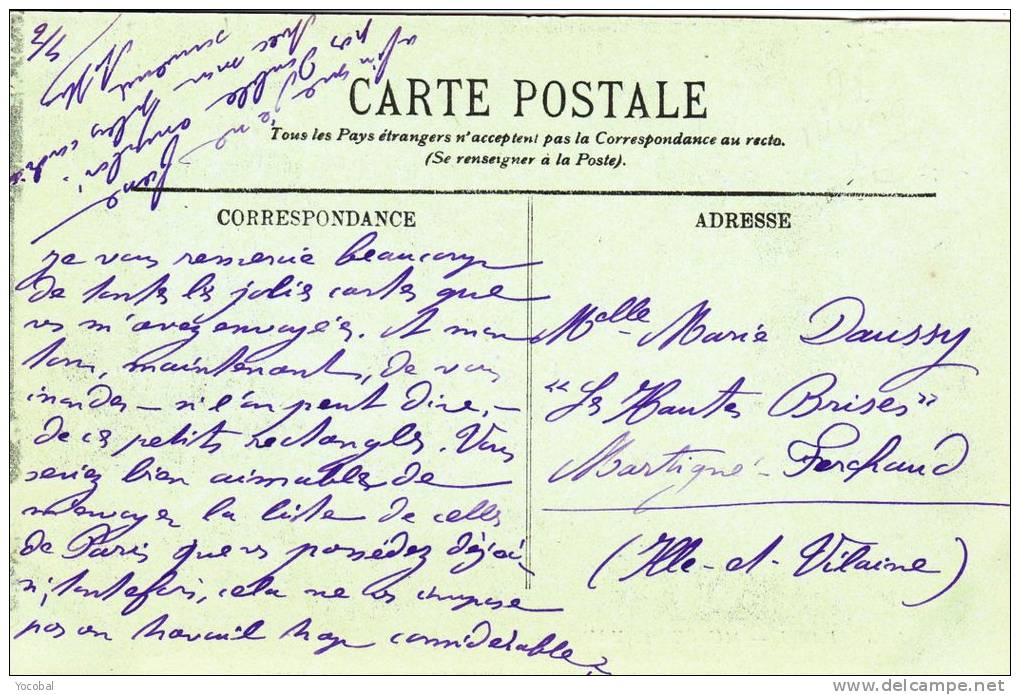 CARTE POSTALE
Tous les Pays étrangers n'acceptent pas la Correspondance au recto.
(Se renseigner à la Poste).
CORRESPONDANCE
Je vous remercie beaucoup
de toutes les jolies cartes que
vs m'avez envoyées. A mon
tour, maintenant, de vous
inonder – si l'on peut dire, –
de ces petits rectangles. Vous
seriez bien aimables de
m'envoyer la liste de celles
de Paris que vs possédez déjà,
si, toutefois, cela ne vs impose
pas un travail trop considérable,
afin que je ne
pas double
avec mes
bien
ADRESSE
Melle Marie Daussy
"Les Hautes Brises"
Martigné-Ferchaud
(Ille-et-Vilaine)
Yocobal
www.delcampe.net